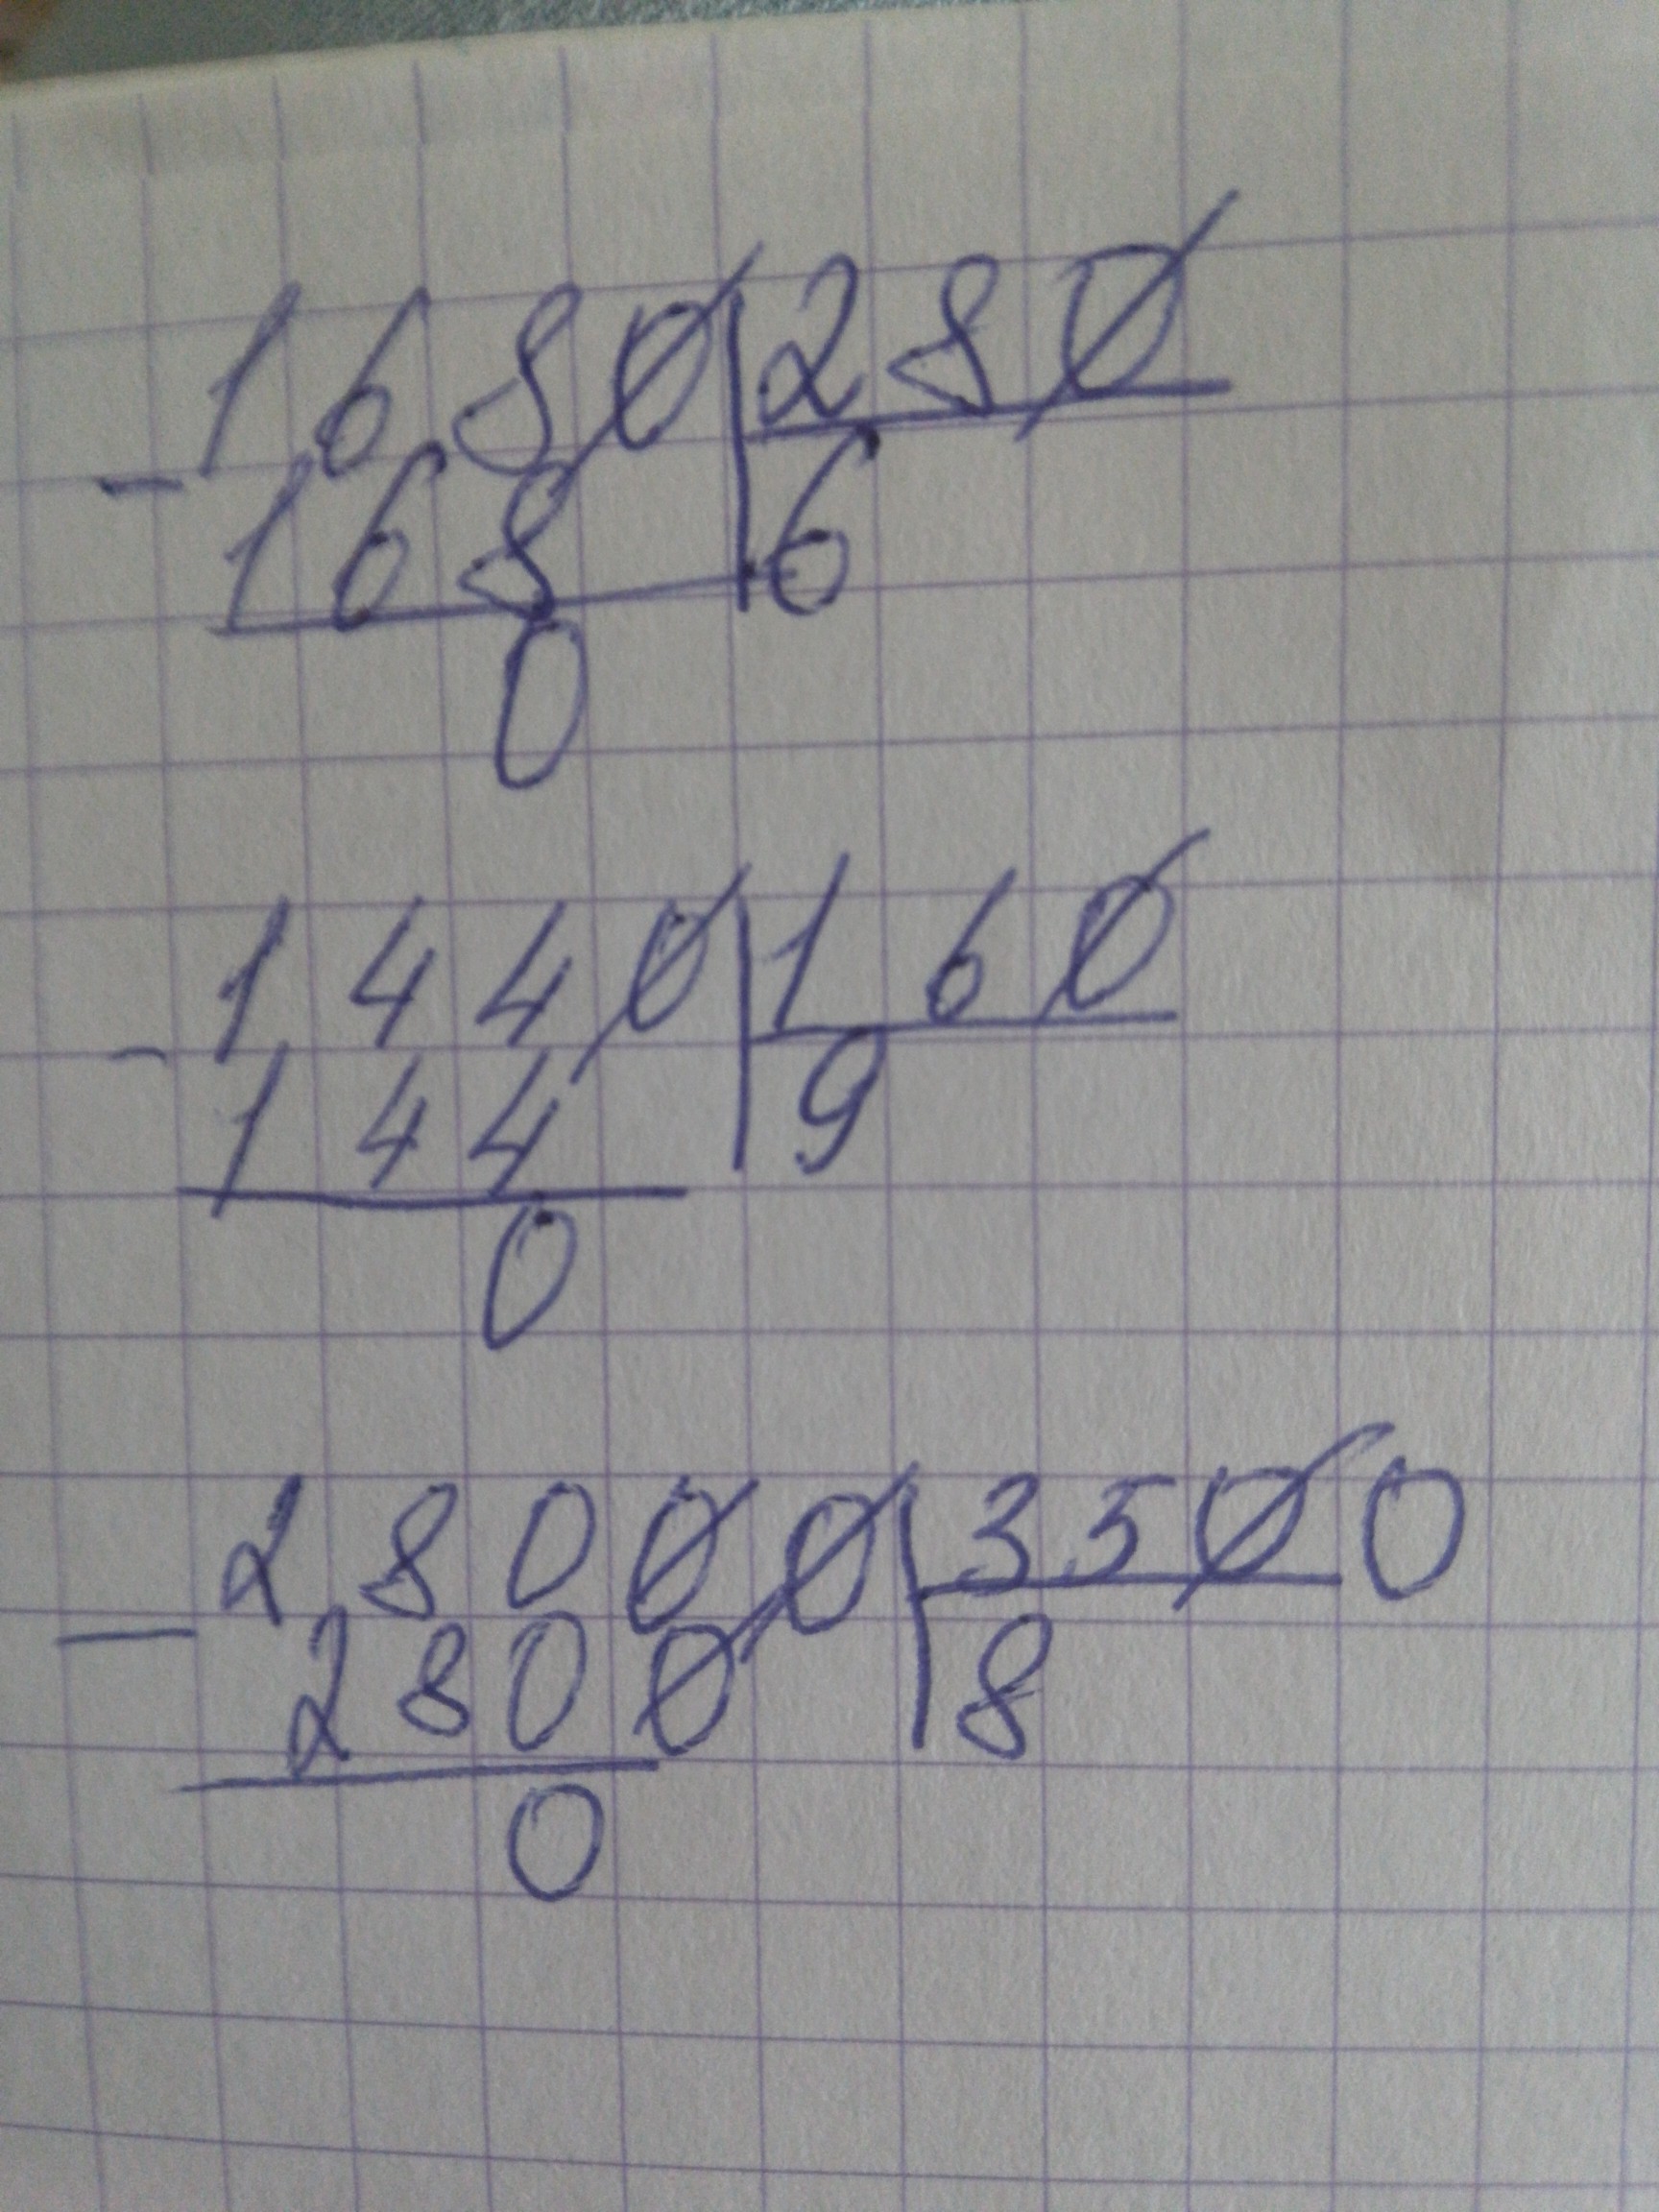 1680|280
- 168 6
0
1440|160
- 144 9
0
28000|3500
- 2800 8
0